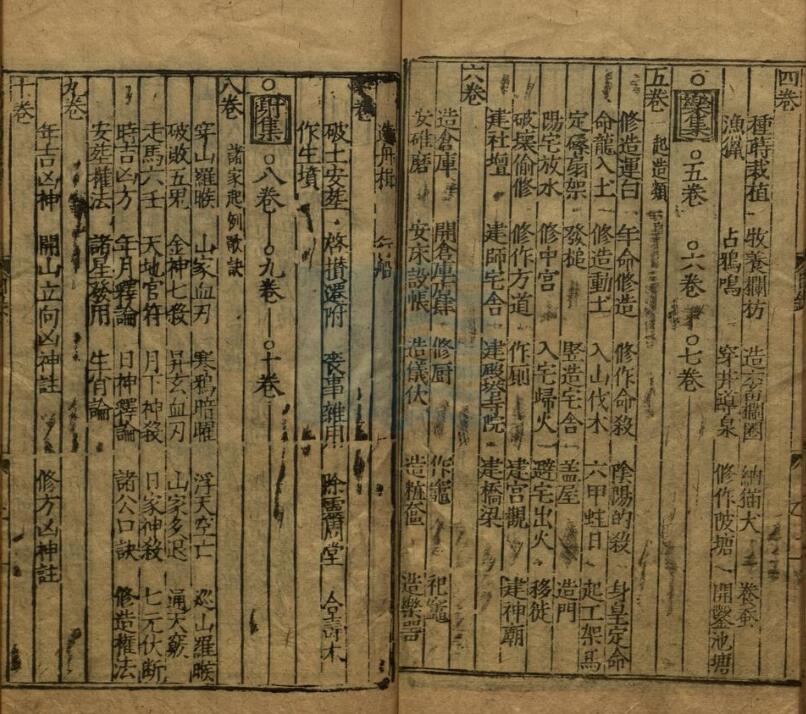 四卷
種蒔栽植 牧養欄枋 納猫犬 養蚕
漁獵 占鴉鳴 穿井導泉 修作陂塘 開鑿池塘
集 ○五卷 ○六卷 ○七卷
五卷 起造類
修造運白 年命修造 修作命殺 陰陽的殺 身皇定命
命龍入土 修造動土 入山伐木 六甲蛀日 起工架馬
定磉扇架 發槌 竪造宅舍 盖屋 造門
陽宅放水 修中宮 入宅歸火 避宅出火 移徙
破壞偷修 修作方道 作厠 建宮觀 建神廟
建社壇 建師宅舍 建寺院 建橋梁
六卷
造倉庫 開倉庫 修厨 作竈 祀竈
安碓磨 安床設帳 造儀仗 造粧奩 造樂器
卷
破土安塟 啓攢還附 喪事雜用 除靈 堂 合壽木
作生墳
集 ○八卷 ○九卷 ○十卷
八卷 諸家起例歌訣
穿山羅睺 山家血刃 寒鴉暗曜 浮天空亡 巡山羅睺
破敗五鬼 金神七殺 昇玄血刃 山家多退 通天竅
走馬六壬 天地官符 月下神殺 日家神殺 七元伏斷
時吉凶方 年月釋論 日神釋論 諸公口訣 修造權法
安塟權法 諸星發用 生肖論
九卷
年吉凶神 開山立向凶神註 修方凶神註
十卷